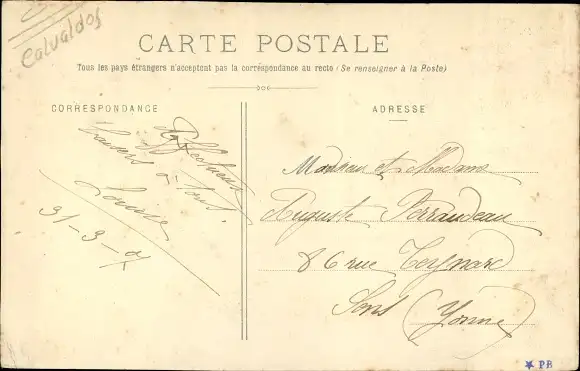 Calvaldos
CARTE POSTALE
Tous les pays étrangers n'acceptent pas la correspondance au recto (Se renseigner à la Poste)
CORRESPONDANCE
ADRESSE
Affectueux
baisers à tous.
Louise
31-3-07
Monsieur et Madame
Auguste Perraudeau
86 rue
Sens (Yonne)
PB